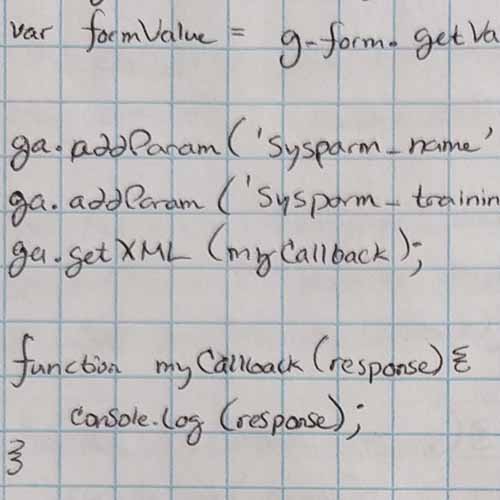 var formValue = g-form. getVa
ga.addParam('Sysparm_name'
ga.addParam('Sysparm_trainin
ga.getXML (myCallback);
function myCallback(response){
console.log (response);
}